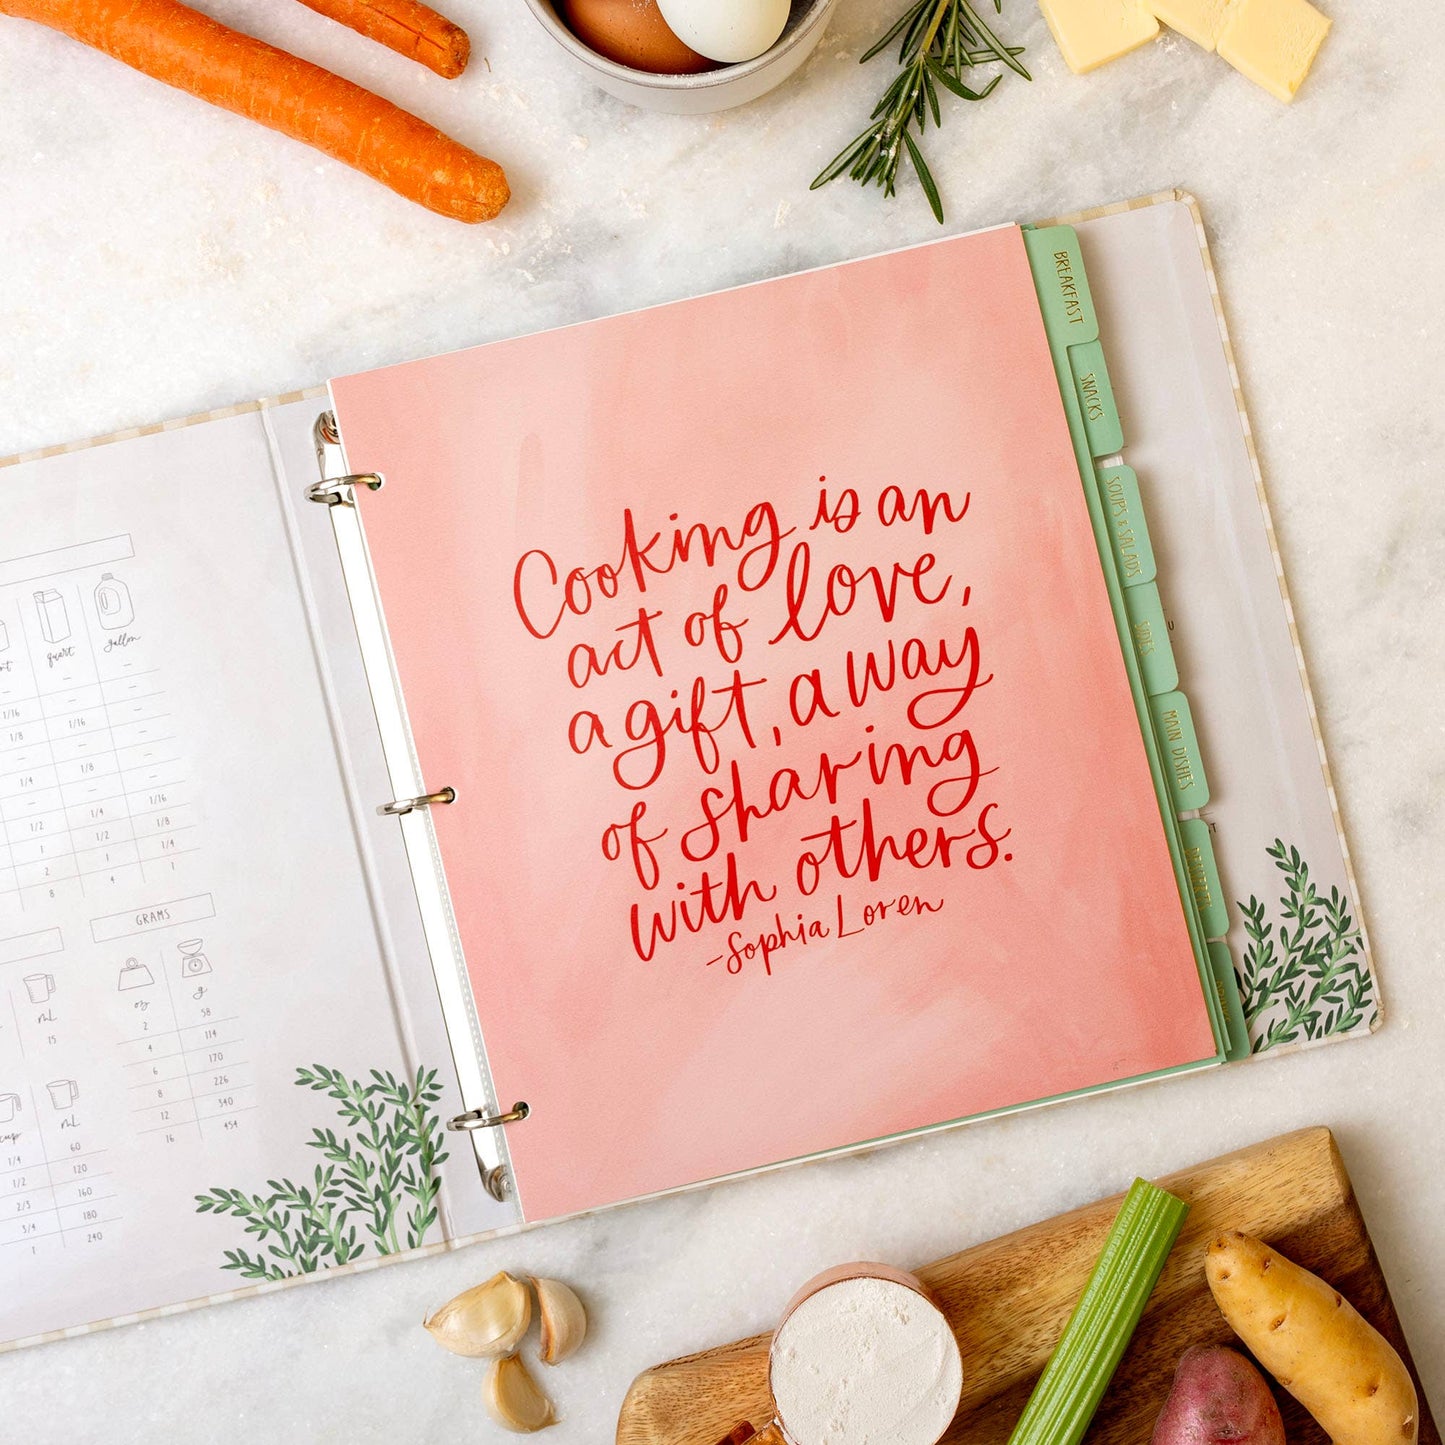 Cooking is an
act of love,
a gift, a way
of sharing
with others.
-Sophia Loren
BREAKFAST
SNACKS
SOUPS & SALADS
SIDES
MAIN DISHES
DESSERTS
quart
gallon
–
–
–
–
1/16
–
–
1/16
1/8
–
–
1/4
1/8
–
–
–
1/16
1/2
1/4
1/8
1
1/2
1/4
2
1
1
8
4
GRAMS
oz
g
2
58
4
114
6
170
8
226
12
340
16
454
mL
15
cup
mL
1/4
60
1/2
120
2/3
160
3/4
180
1
240